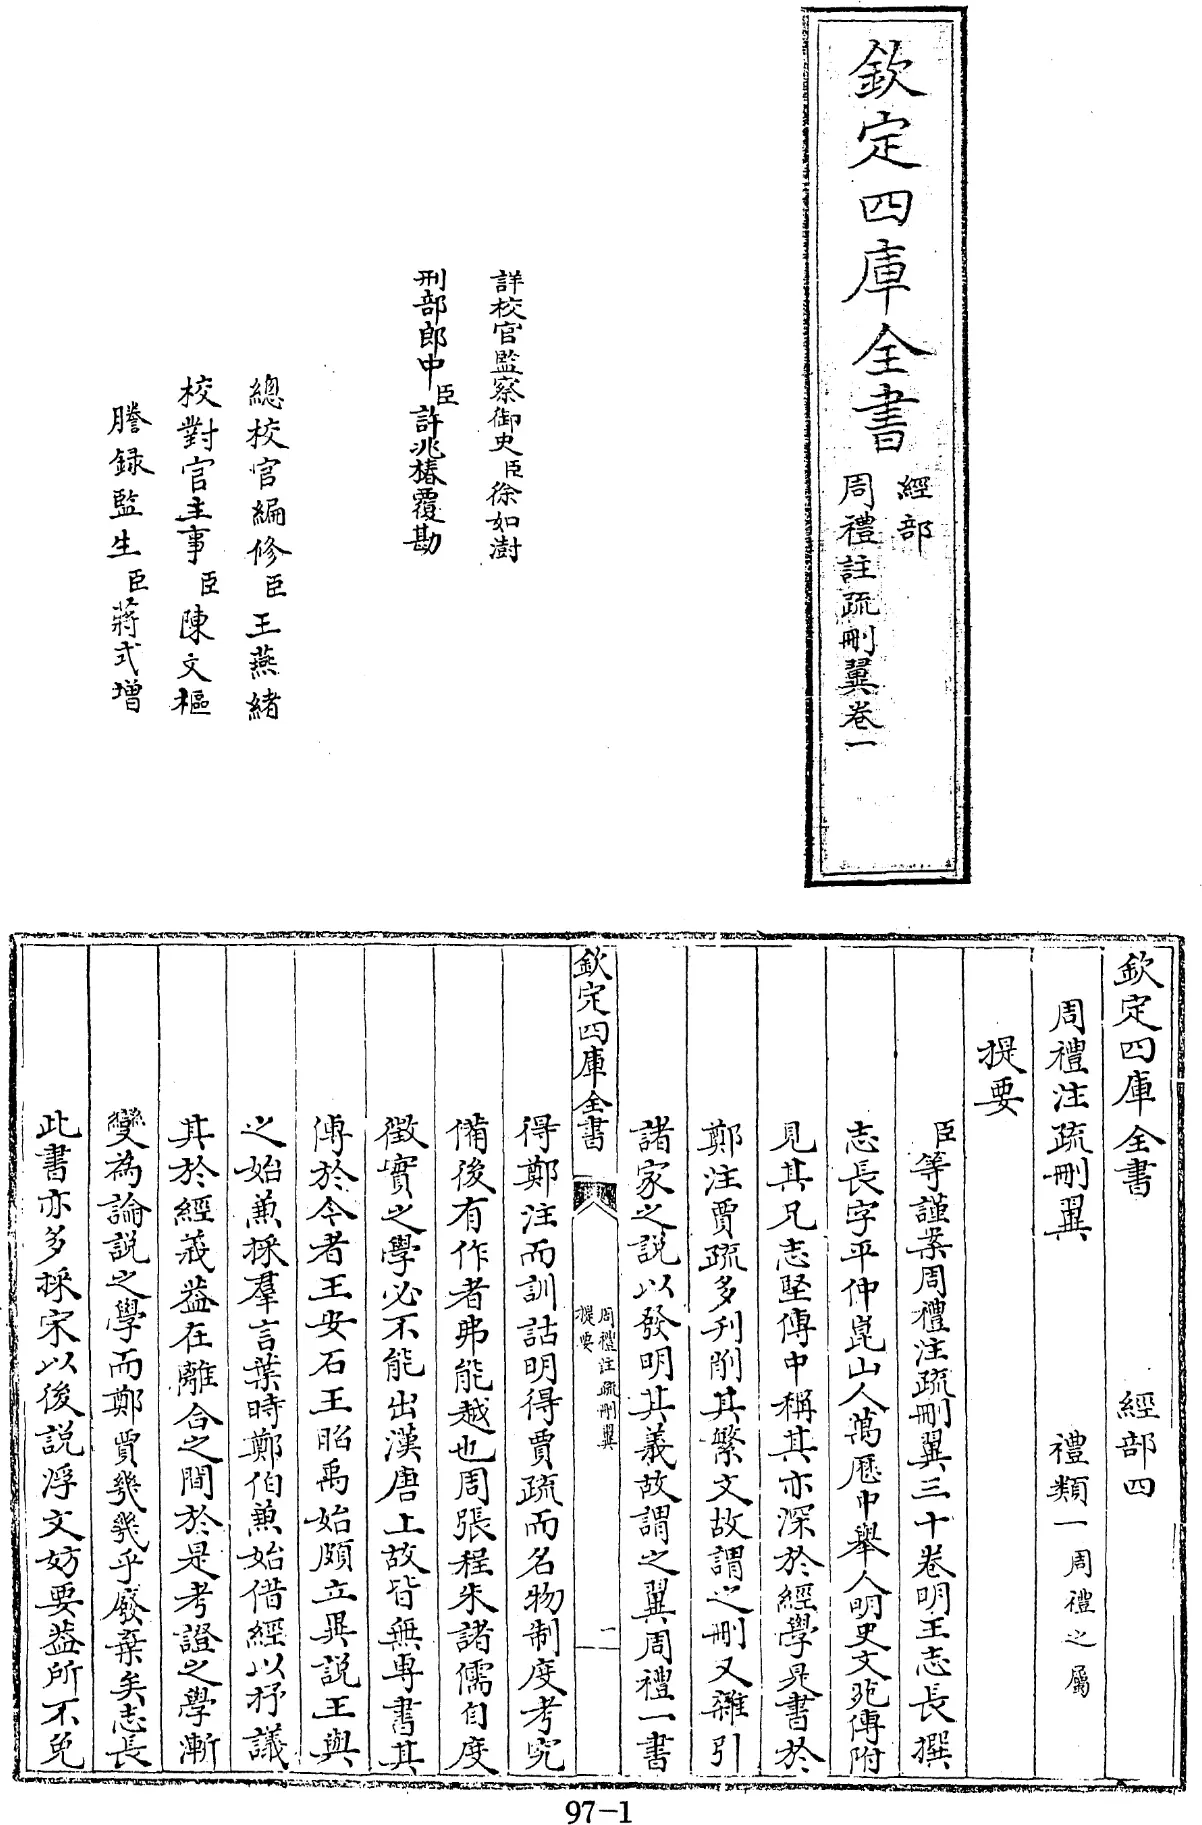 欽定四庫全書
經部
周禮註疏刪翼卷一
詳校官監察御史臣徐如澍
刑部郎中臣許兆椿覆勘
總校官編修臣王燕緒
校對官主事臣陳文樞
謄録監生臣蔣式增
欽定四庫全書 經部四
周禮注疏刪翼 禮類一周禮之屬
提要
臣等謹案周禮注疏刪翼三十卷明王志長撰
志長字平仲崑山人萬厯中舉人明史文苑傳附
見其兄志堅傳中稱其亦深於經學是書於
鄭注賈疏多刋削其繁文故謂之刪又雜引
諸家之説以發明其義故謂之翼周禮一書
欽定四庫全書
周禮註疏刪翼
提要
一
得鄭注而訓詁明得賈疏而名物制度考究
備後有作者弗能越也周張程朱諸儒自度
徵實之學必不能出漢唐上故皆無專書其
傳於今者王安石王昭禹始頗立異説王與
之始兼採羣言葉時鄭伯兼始借經以抒議
其於經義益在離合之間於是考證之學漸
變為論説之學而鄭賈幾幾乎廢棄矣志長
此書亦多採宋以後説浮文妨要葢所不免
97-1